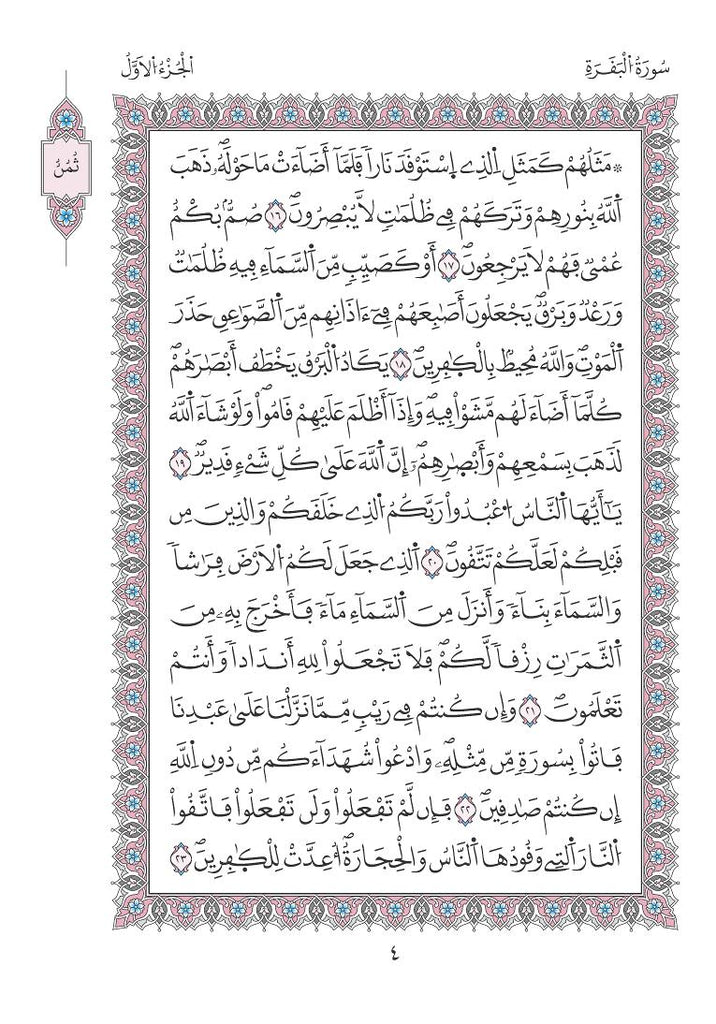 سُورَةُ الْبَقَرَةِ
اَلْجُزْءُ الْأَوَّلُ
ثُمُنُ
۞ مَثَلُهُمْ كَمَثَلِ اِ۬لذِے اِ۪سْتَوْقَدَ نَاراٗ فَلَمَّآ أَضَآءَتْ مَا حَوْلَهُۥ ذَهَبَ
اَ۬للَّهُ بِنُورِهِمْ وَتَرَكَهُمْ فِے ظُلُمَٰتٖ لاَّ يُبْصِرُونَۖ ١٦ صُمُّۢ بُكْمٌ
عُمْيٞ فَهُمْ لَا يَرْجِعُونَۖ ١٧ أَوْ كَصَيِّبٖ مِّنَ اَ۬لسَّمَآءِ فِيهِ ظُلُمَٰتٞ
وَرَعْدٞ وَبَرْقٞۖ يَجْعَلُونَ أَصَٰبِعَهُمْ فِےٓ ءَاذَانِهِم مِّنَ اَ۬لصَّوَٰعِقِ حَذَرَ
اَ۬لْمَوْتِۖ وَاللَّهُ مُحِيطُۢ بِالْكٰ۪فِرِينَۖ ١٨ يَكَادُ اُ۬لْبَرْقُ يَخْطَفُ أَبْصَٰرَهُمْۖ
كُلَّمَآ أَضَآءَ لَهُم مَّشَوْاْ فِيهِۖ وَإِذَآ أَظْلَمَ عَلَيْهِمْ قَامُواْۖ وَلَوْ شَآءَ اَ۬للَّهُ
لَذَهَبَ بِسَمْعِهِمْ وَأَبْصٰ۪رِهِمُۥٓۖ إِنَّ اَ۬للَّهَ عَلَىٰ كُلِّ شَےْءٖ قَدِيرٞۖ ١٩
يَٰٓأَيُّهَا اَ۬لنَّاسُ اُ۟عْبُدُواْ رَبَّكُمُ اُ۬لذِے خَلَقَكُمْ وَالذِينَ مِن
قَبْلِكُمْ لَعَلَّكُمْ تَتَّقُونَۖ ٢٠ اَ۬لذِے جَعَلَ لَكُمُ اُ۬لَارْضَ فِرَٰشاٗ
وَالسَّمَآءَ بِنَآءٗ وَأَنزَلَ مِنَ اَ۬لسَّمَآءِ مَآءٗ فَأَخْرَجَ بِهِۦ مِنَ
اَ۬لثَّمَرَٰتِ رِزْقاٗ لَّكُمْۖ فَلَا تَجْعَلُواْ لِلهِ أَندَاداٗ وَأَنتُمْ
تَعْلَمُونَۖ ٢١ وَإِن كُنتُمْ فِے رَيْبٖ مِّمَّا نَزَّلْنَا عَلَىٰ عَبْدِنَا
فَاتُواْ بِسُورَةٖ مِّن مِّثْلِهِۦ وَادْعُواْ شُهَدَآءَكُم مِّن دُونِ اِ۬للَّهِ
إِن كُنتُمْ صَٰدِقِينَۖ ٢٢ فَإِن لَّمْ تَفْعَلُواْ وَلَن تَفْعَلُواْ فَاتَّقُواْ
اُ۬لنَّارَ اَ۬لتِے وَقُودُهَا اَ۬لنَّاسُ وَالْحِجَارَةُۖ أُعِدَّتْ لِلْكٰ۪فِرِينَۖ ٢٣
٤